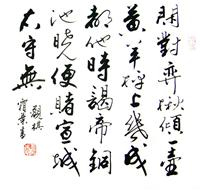 閑對弈楸傾一壺
黃羊枰上幾成
都他時謁帝銅
池曉便賭宣城
太守無
觀棋